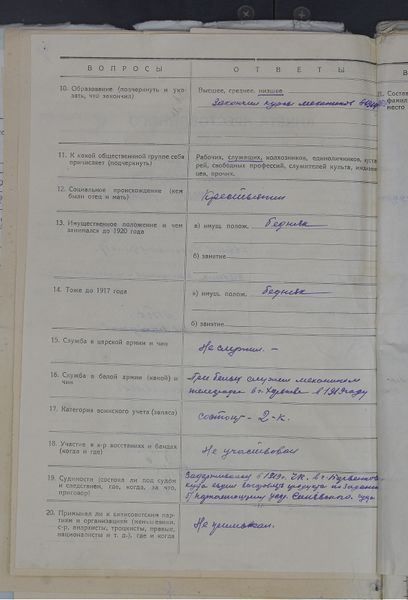 ВОПРОСЫ
ОТВЕТЫ
10. Образование (подчеркнуть и ука-
зать, что закончил)
Высшее, среднее, низшее
Закончил курсы механиков
11. К какой общественной группе себя
причисляет (подчеркнуть)
Рабочих, служащих, колхозников, единоличников, куста-
рей, свободных профессий, служителей культа,
цев, прочих.
12. Социальное происхождение (кем
были отец и мать)
Крестьянин
13. Имущественное положение и чем
занимался до 1920 года
а) имущ. полож. бедняк
б) занятие
14. Тоже до 1917 года
а) имущ. полож. бедняк
б) занятие
15. Служба в царской армии и чин
Не служил. —
16. Служба в белой армии (какой) и
чин
При белых служил механиком
телеграфа в г. Харькове в 1919 году
17. Категория воинского учета (запаса)
состоит - 2-к.
18. Участие в к-р восстаниях и бандах
(когда и где)
Не участвовал
19. Судимости (состоял ли под судом
и следствием, где, когда, за что,
приговор)
1919 г. ЧК. в г.
20. Примыкал ли к антисоветским пар-
тиям и организациям (меньшевики,
с-р, анархисты, троцкисты, правые,
националисты и т. д.), где и когда
Не примыкал.
В
21. Состав
фамил
место